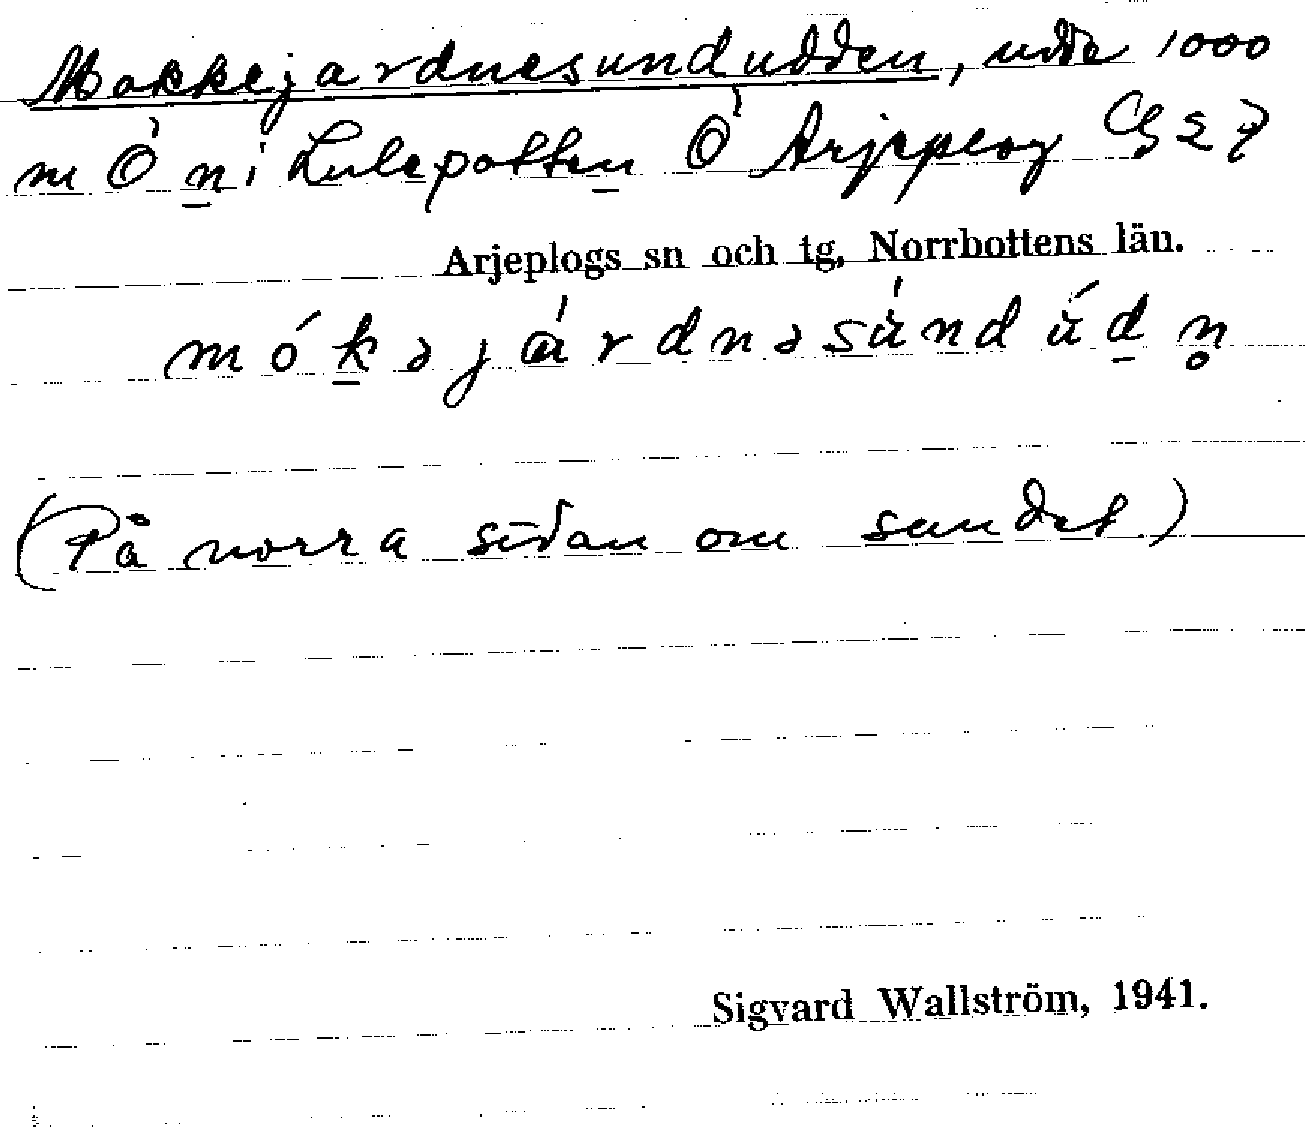 Mokkejardnesundudden, udde 1000
m Ö n i Lulepotten Ö Arjeplog
Arjeplogs sn och tg, Norrbottens län.
mók̠əjárdnəsúndúd̠n̥
(På norra sidan om sundet.)
Sigvard Wallström, 1941.